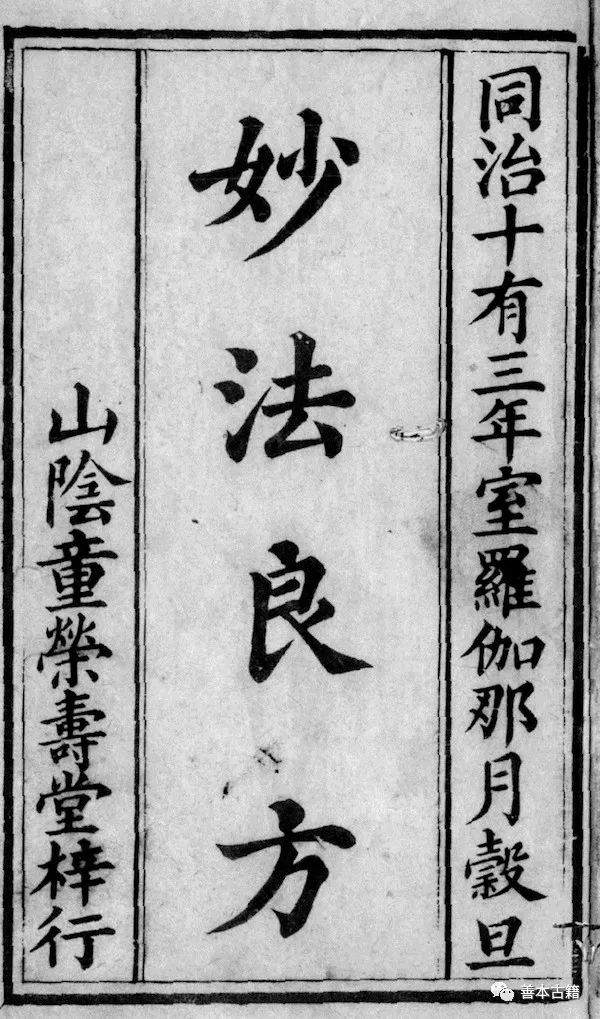 同治十有三年室羅伽那月穀旦
妙法良方
山陰童榮壽堂梓行
善本古籍